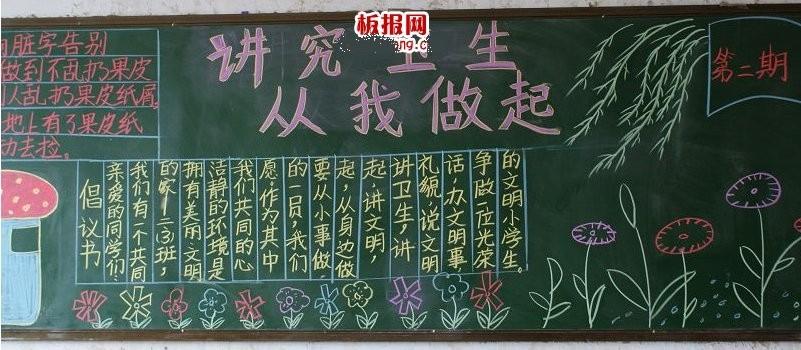 板报网
脏字告别
做到不乱扔果皮
从乱扔果皮纸屑。
地上有了果皮纸
动去捡。
讲究卫生
从我做起
第二期
倡议书
亲爱的同学们:
我们有一个共同
的家二(3)班,
拥有美丽、文明
洁静的环境是
我们共同的心
愿,作为其中
的一员,我们
要从小事做
起,从身边做
起,讲文明,
讲卫生,讲
礼貌,说文明
话,办文明事,
争做一位光荣
的文明小学生。